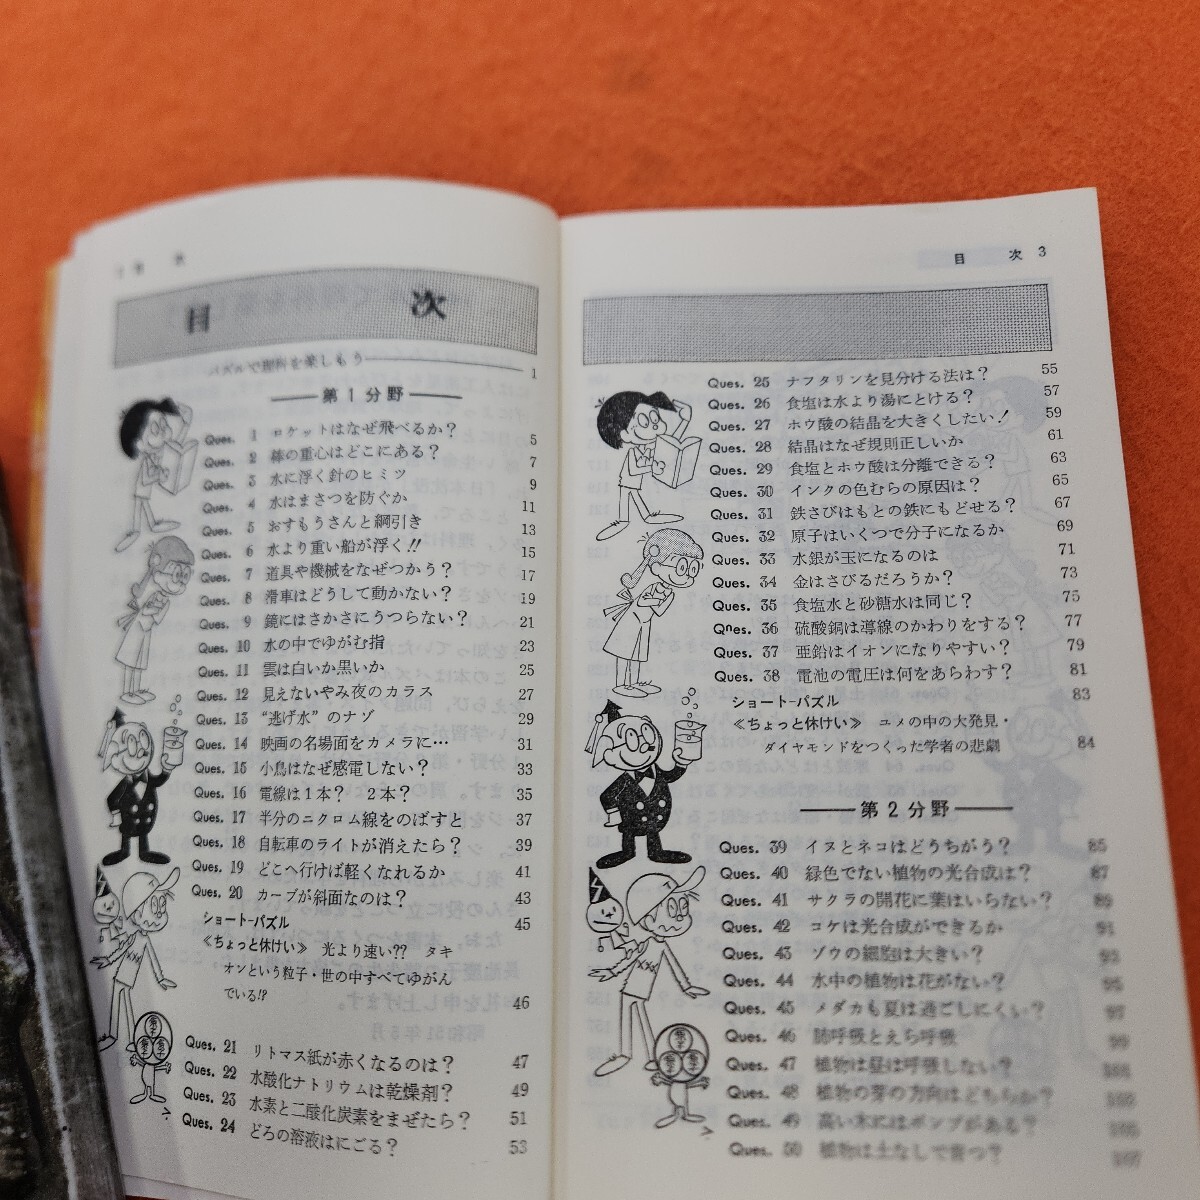 目 次
パズルで理科を楽しもう 1
第1分野
Ques. 1 ロケットはなぜ飛べるか? 5
Ques. 2 棒の重心はどこにある? 7
Ques. 3 水に浮く針のヒミツ 9
Ques. 4 水はまさつを防ぐか 11
Ques. 5 おすもうさんと綱引き 13
Ques. 6 水より重い船が浮く!! 15
Ques. 7 道具や機械をなぜつかう? 17
Ques. 8 滑車はどうして動かない? 19
Ques. 9 鏡にはさかさにうつらない? 21
Ques. 10 水の中でゆがむ指 23
Ques. 11 雲は白いか黒いか 25
Ques. 12 見えないやみ夜のカラス 27
Ques. 13 “逃げ水”のナゾ 29
Ques. 14 映画の名場面をカメラに… 31
Ques. 15 小鳥はなぜ感電しない? 33
Ques. 16 電線は1本? 2本? 35
Ques. 17 半分のニクロム線をのばすと 37
Ques. 18 自転車のライトが消えたら? 39
Ques. 19 どこへ行けば軽くなれるか 41
Ques. 20 カーブが斜面なのは? 43
ショート-パズル 45
《ちょっと休けい》 光より速い?? タキ
オンという粒子・世の中すべてゆがん
でいる!? 46
Ques. 21 リトマス紙が赤くなるのは? 47
Ques. 22 水酸化ナトリウムは乾燥剤? 49
Ques. 23 水素と二酸化炭素をまぜたら? 51
Ques. 24 どろの溶液はにごる? 53
目 次 3
Ques. 25 ナフタリンを見分ける法は? 55
Ques. 26 食塩は水より湯にとける? 57
Ques. 27 ホウ酸の結晶を大きくしたい! 59
Ques. 28 結晶はなぜ規則正しいか 61
Ques. 29 食塩とホウ酸は分離できる? 63
Ques. 30 インクの色むらの原因は? 65
Ques. 31 鉄さびはもとの鉄にもどせる? 67
Ques. 32 原子はいくつで分子になるか 69
Ques. 33 水銀が玉になるのは 71
Ques. 34 金はさびるだろうか? 73
Ques. 35 食塩水と砂糖水は同じ? 75
Ques. 36 硫酸銅は導線のかわりをする? 77
Ques. 37 亜鉛はイオンになりやすい? 79
Ques. 38 電池の電圧は何をあらわす? 81
ショート-パズル 83
《ちょっと休けい》 ユメの中の大発見・
ダイヤモンドをつくった学者の悲劇 84
第2分野
Ques. 39 イヌとネコはどうちがう? 85
Ques. 40 緑色でない植物の光合成は? 87
Ques. 41 サクラの開花に葉はいらない? 89
Ques. 42 コケは光合成ができるか 91
Ques. 43 ゾウの細胞は大きい? 93
Ques. 44 水中の植物は花がない? 95
Ques. 45 メダカも夏は過ごしにくい? 97
Ques. 46 肺呼吸とえら呼吸 99
Ques. 47 植物は昼は呼吸しない? 101
Ques. 48 植物の芽の方向はどちらか? 103
Ques. 49 高い木にはポンプがある? 105
Ques. 50 植物は土なしで育つ? 107